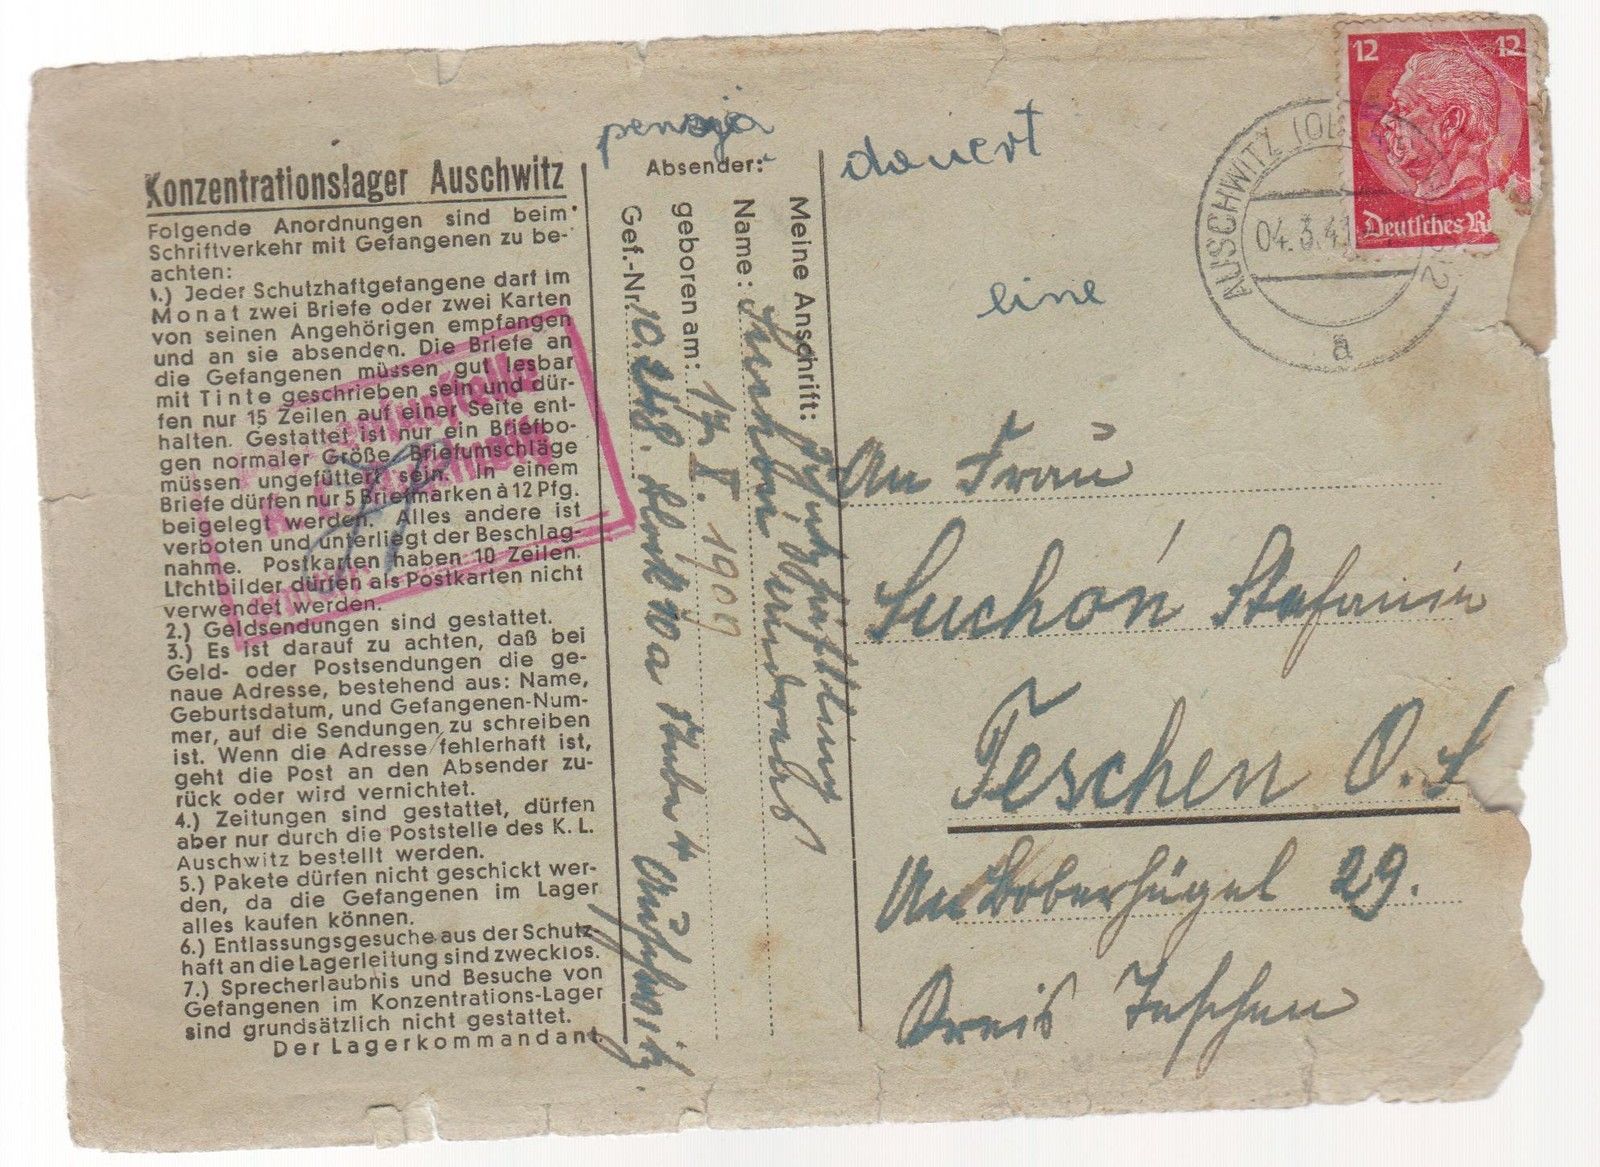 Konzentrationslager Auschwitz
Folgende Anordnungen sind beim
Schriftverkehr mit Gefangenen zu be-
achten:
1.) Jeder Schutzhaftgefangene darf im
Monat zwei Briefe oder zwei Karten
von seinen Angehörigen empfangen
und an sie absenden. Die Briefe an
die Gefangenen müssen gut lesbar
mit Tinte geschrieben sein und dür-
fen nur 15 Zeilen auf einer Seite ent-
halten. Gestattet ist nur ein Briefbo-
gen normaler Größe. Briefumschläge
müssen ungefüttert sein. In einem
Briefe dürfen nur 5 Briefmarken à 12 Pfg.
beigelegt werden. Alles andere ist
verboten und unterliegt der Beschlag-
nahme. Postkarten haben 10 Zeilen.
Lichtbilder dürfen als Postkarten nicht
verwendet werden.
2.) Geldsendungen sind gestattet.
3.) Es ist darauf zu achten, daß bei
Geld- oder Postsendungen die ge-
naue Adresse, bestehend aus: Name,
Geburtsdatum, und Gefangenen-Num-
mer, auf die Sendungen zu schreiben
ist. Wenn die Adresse fehlerhaft ist,
geht die Post an den Absender zu-
rück oder wird vernichtet.
4.) Zeitungen sind gestattet, dürfen
aber nur durch die Poststelle des K. L.
Auschwitz bestellt werden.
5.) Pakete dürfen nicht geschickt wer-
den, da die Gefangenen im Lager
alles kaufen können.
6.) Entlassungsgesuche aus der Schutz-
haft an die Lagerleitung sind zwecklos.
7.) Sprecherlaubnis und Besuche von
Gefangenen im Konzentrations-Lager
sind grundsätzlich nicht gestattet.
Der Lagerkommandant.
pensja
Absender:
Meine Anschrift: Schutzhäftling
Name: Suchon Andreas
geboren am: 17. I. 1909
Gef.-Nr. 10.248. Block 10a Stube 4 Auschwitz.
dauert
eine
12 12
Deutsches R
AUSCHWITZ (OBERSCHL) 2
04.3.43
a
An Frau
Suchoń Stefanie
Teschen O.S
An Boberhügel 29.
Kreis Teschen